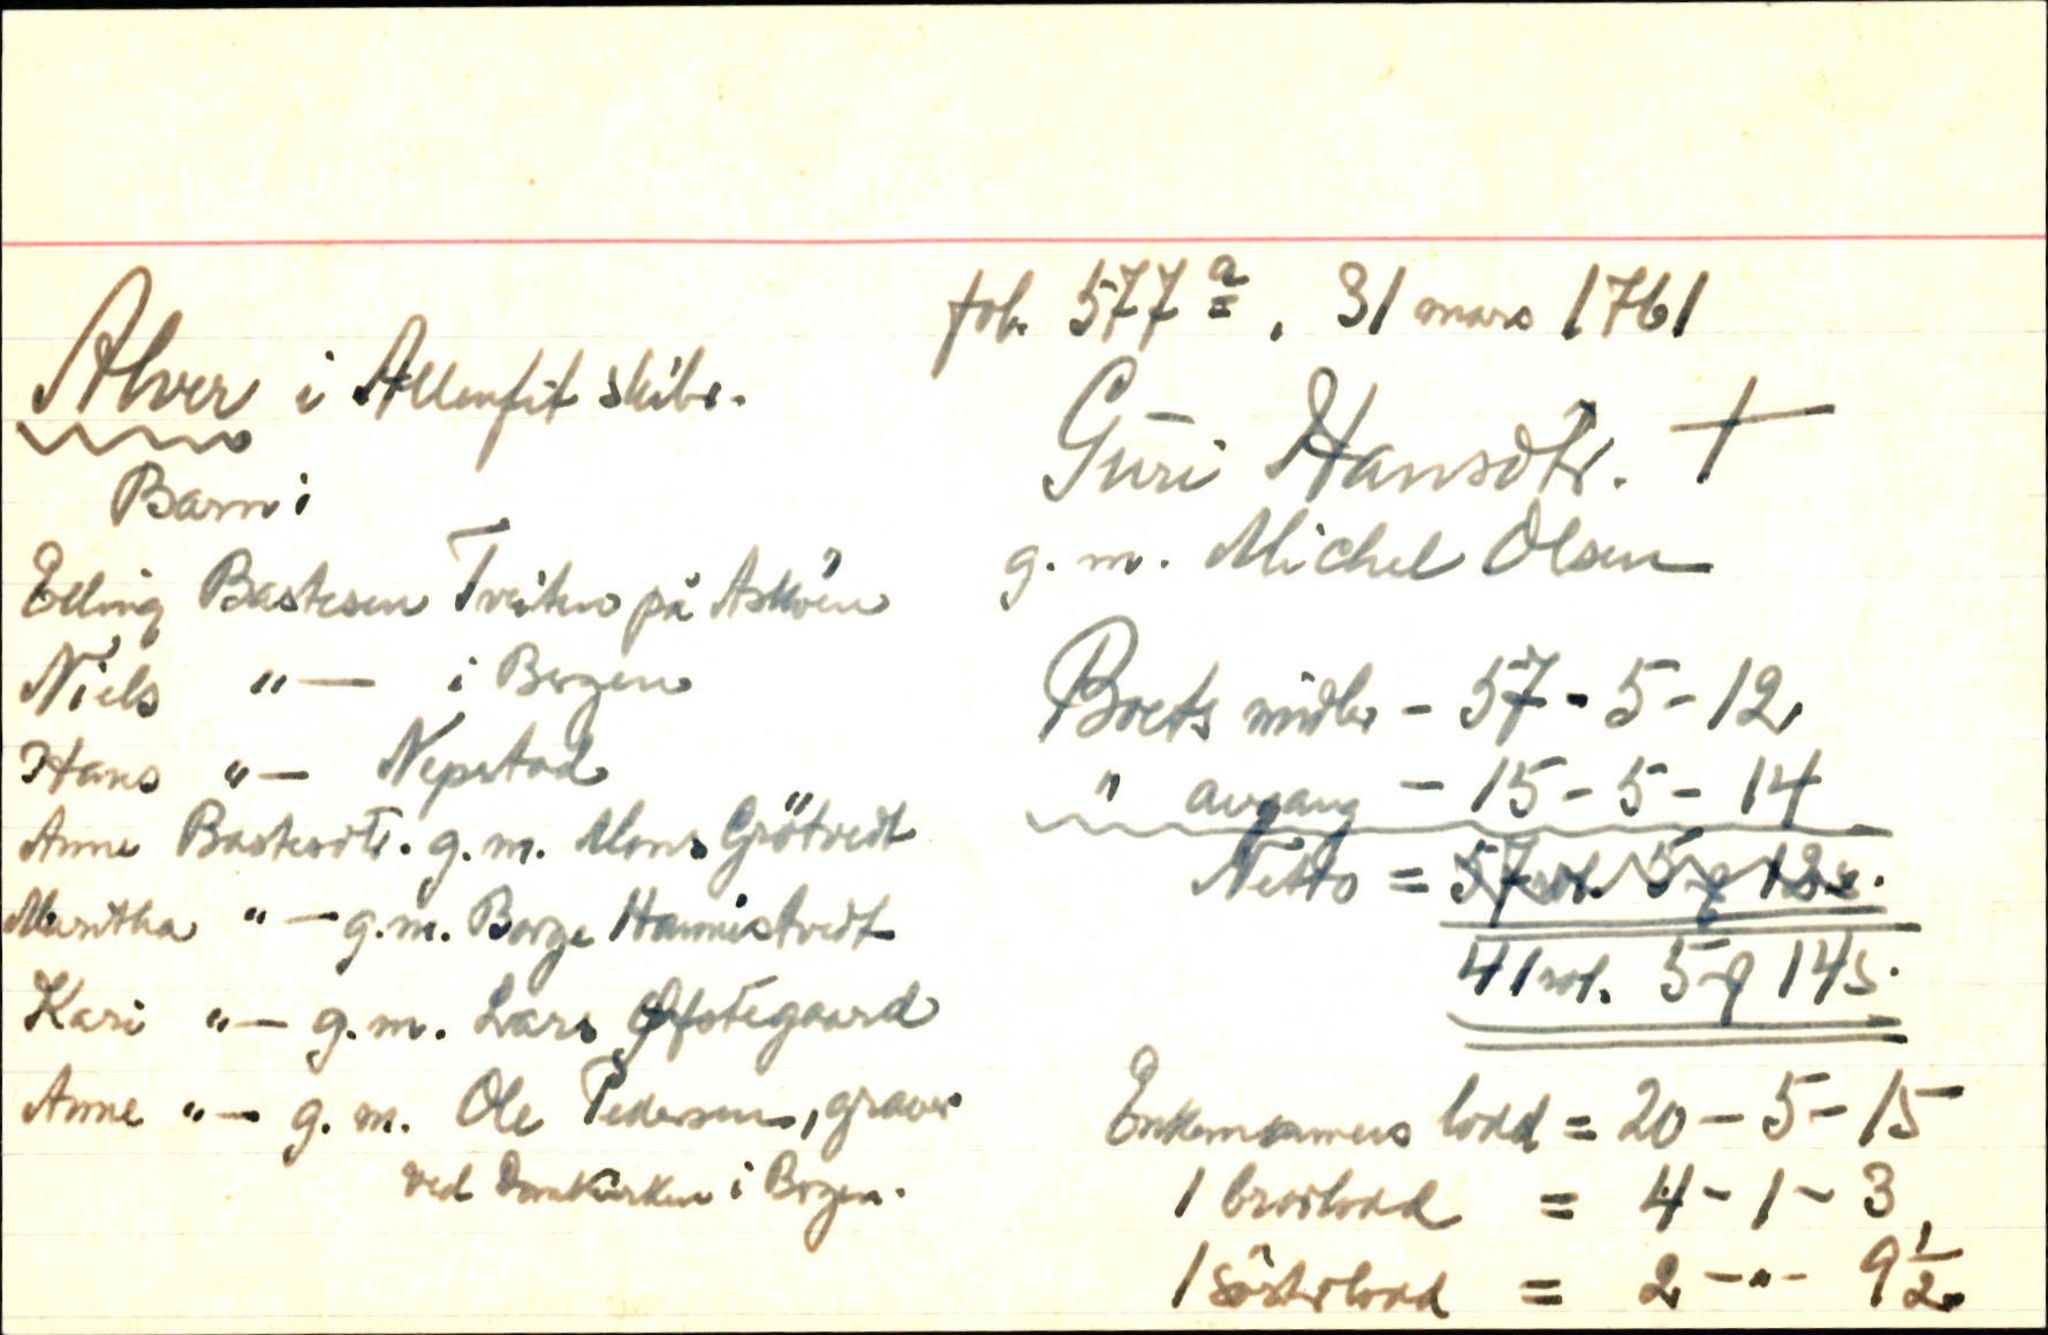 fol. 577 a, 31 mars 1761
Alver i Allenfit skibr.
Guri Hansdtr. †
g. m. Michel Olsen
Barn i
Elling Bastesen Tveiten på Asköen
Niels "— i Bergen
Hans "— Nepstad
Anne Bastesdtr. g. m. Mons Grötvedt
Maritha "— g. m. Borge Hannistvedt
Kari "— g. m. Lars Ofstegaard
Anne "— g. m. Ole Pedersen, graver
ved Domkirken i Bergen.
Boets midler - 57 - 5 - 12
" avgang - 15 - 5 - 14
Netto = 57 rd. 5 12 s.
41 rd. 5 14 s.
Enkemannens lodd = 20 - 5 - 15
1 broslodd = 4 - 1 - 3
1 søsterlodd = 2 - " - 9 1/2